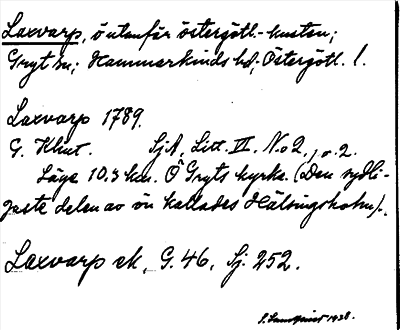 Laxvarp, ö utanför östergötl.-kusten;
Gryt sn; Hammarkinds hd; Östergötl. l.
Laxvarp 1789.
G. Klint. SjA, Litt. VI, No 2, 1 o. 2.
Läge 10.3 km. Ö Gryts kyrka. (Den sydli-
gaste delen av ön kallades Hälsingeholm).
Laxvarp ek, G. 46, Sj. 252.
1938.